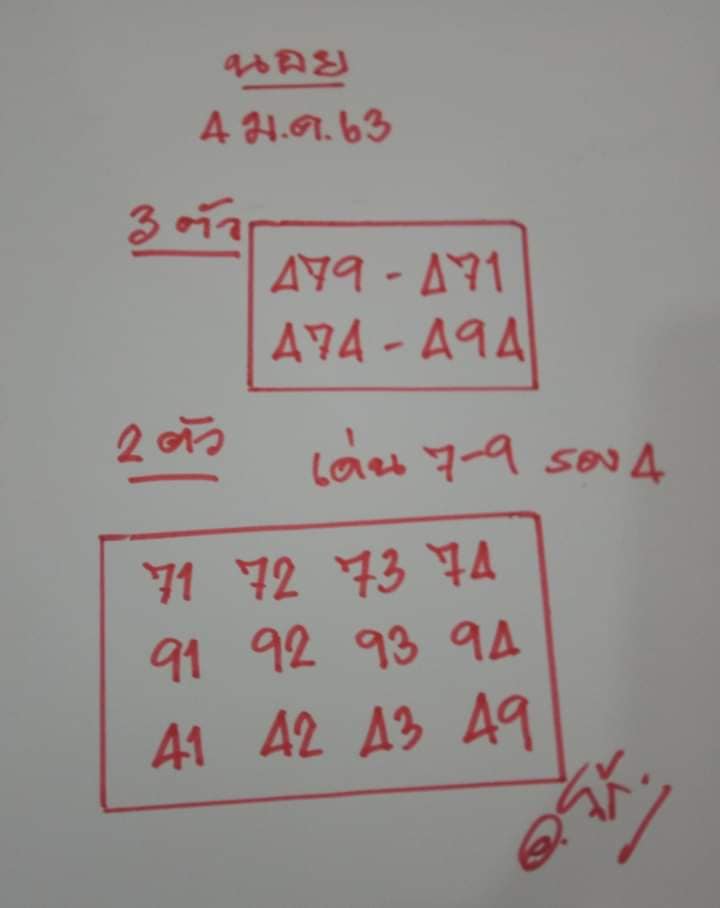 นอย
4 ม.ค. 63
3 ตัว
479 - 471
474 - 494
2 ตัว เด่น 7-9 รอง 4
71 72 73 74
91 92 93 94
41 42 43 49